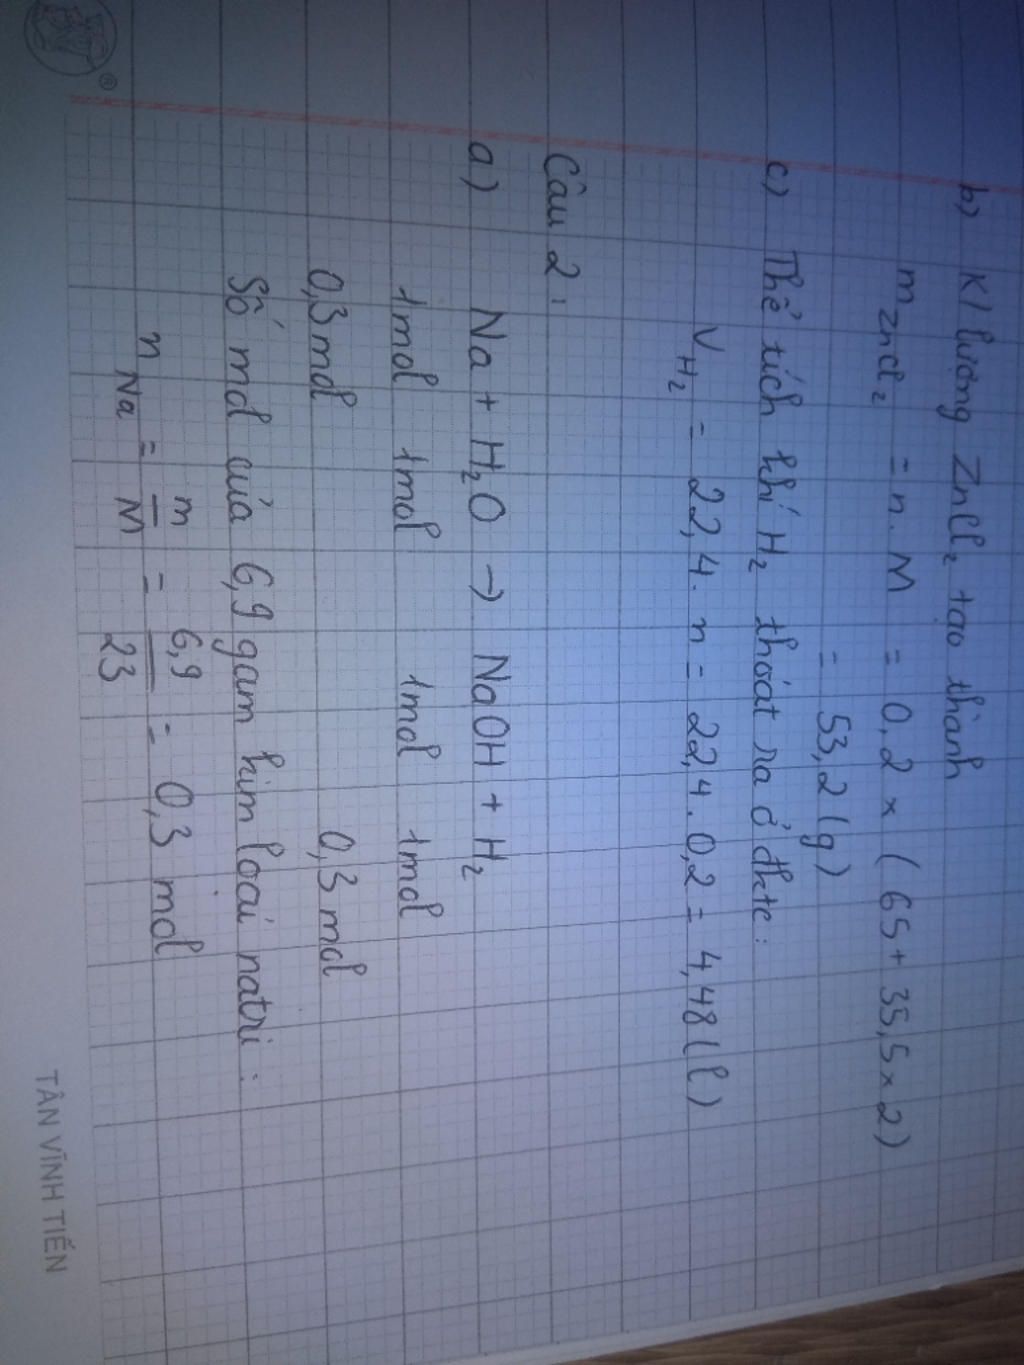 b) Kl lượng ZnCl₂ tạo thành
m ZnCl₂ = n. M = 0,2 × (65+ 35,5×2)
= 53,2 (g)
c) Thể tích khí H₂ thoát ra ở đktc:
V H₂ = 22,4. n = 22,4. 0,2 = 4,48 (l)
Câu 2:
a) Na + H₂O → NaOH + H₂
1mol 1mol 1mol 1mol
0,3mol 0,3mol
Số mol của 6,9 gam kim loại natri:
n Na = m/M = 6,9/23 = 0,3 mol
®
TÂN VĨNH TIẾN